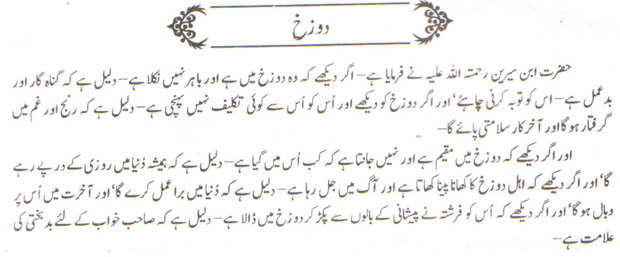 دوزخ
حضرت ابن سیرین رحمتہ اللہ علیہ نے فرمایا ہے – اگر دیکھے کہ وہ دوزخ میں ہے اور باہر نہیں نکلا ہے – دلیل ہے کہ گناہ گار اور
بدعمل ہے – اس کو توبہ کرنی چاہئے‘ اور اگر دوزخ کو دیکھے اور اُس کو اُس سے کوئی تکلیف نہیں پہنچی ہے – دلیل ہے کہ رنج اور غم میں
گرفتار ہوگا اور آخرکار سلامتی پائے گا –
اور اگر دیکھے کہ دوزخ میں مقیم ہے اور نہیں جانتا ہے کہ کب اُس میں گیا ہے – دلیل ہے کہ ہمیشہ دُنیا میں روزی کے درپے رہے
گا‘ اور اگر دیکھے کہ اہل دوزخ کا کھانا پینا کھاتا ہے اور آگ میں جل رہا ہے – دلیل ہے کہ دُنیا میں برا عمل کرے گا‘ اور آخرت میں اُس پر
وبال ہوگا‘ اور اگر دیکھے کہ اُس کو فرشتہ نے پیشانی کے بالوں سے پکڑ کر دوزخ میں ڈالا ہے – دلیل ہے کہ صاحب خواب کے لئے بدبختی کی
علامت ہے –